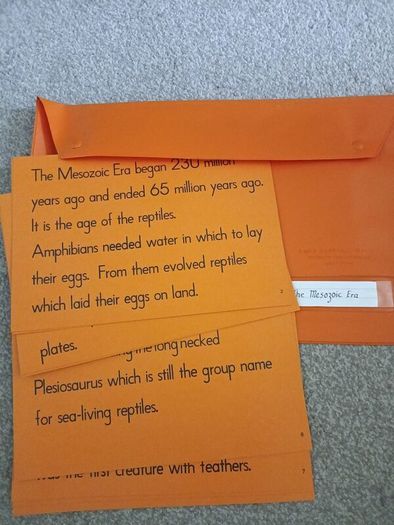 The Mesozoic Era began 230 million
years ago and ended 65 million years ago.
It is the age of the reptiles.
Amphibians needed water in which to lay
their eggs. From them evolved reptiles
which laid their eggs on land.
2
The Mesozoic Era
plates.
the long necked
Plesiosaurus which is still the group name
for sea-living reptiles.
6
was the first creature with feathers.
7